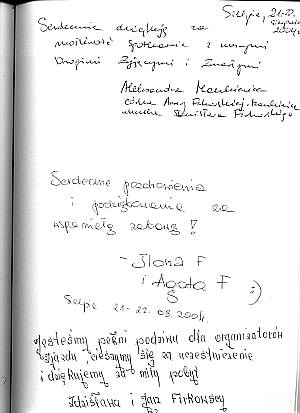 Sierpc, 21-22
sierpnia
2004r.
Serdecznie dziękuję za
możliwość spotkania z nowymi
Drogimi Żyjącymi i Zmarłymi
Aleksandra
córka Anny
wnuczka Stanisława
Serdeczne pozdrowienia
i podziękowania za
wspaniałą zabawę!
- Ilona F
i Agata F :)
Sierpc 21-22.08.2004
Jesteśmy pełni podziwu dla organizatorów
zjazdu, cieszymy się za uczestniczenie
i dziękujemy za miły pobyt
Zdzisława i Jan Firkowscy